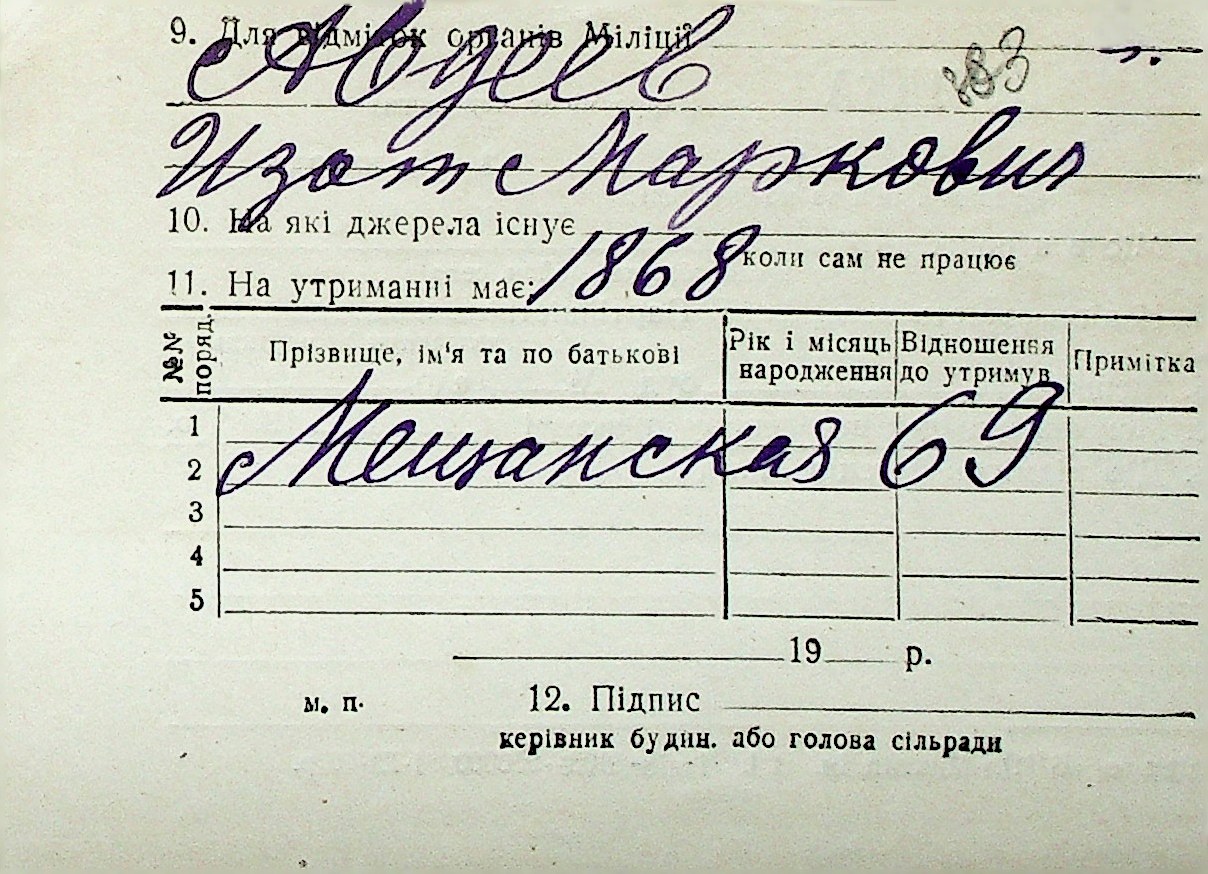 9. Для відміток органів Міліції
Авдеев
483
Изот Маркович
10. На які джерела існує
коли сам не працює
11. На утриманні має:
1868
№№ поряд.
Прізвище, ім‘я та по батькові
Рік і місяць народження
Відношення до утримув.
Примітка
1
Мещанская 69
2
3
4
5
19 р.
м. п.
12. Підпис
керівник будин. або голова сільради